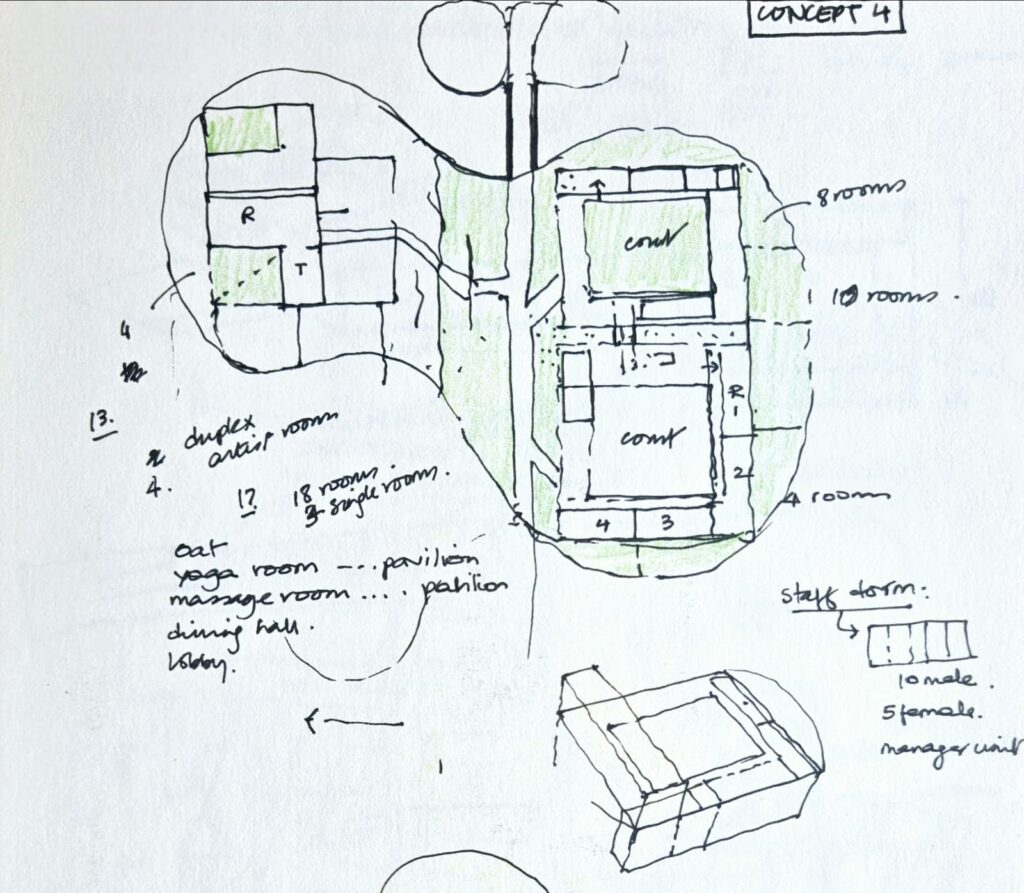 CONCEPT 4
R
T
court
8 rooms
10 rooms.
court
R
1
2
4
3
4 rooms
4
13.
2 duplex
artist room
4.
17 18 rooms
3 single rooms.
eat
yoga room --- pavilion
massage room .... pavilion
dining hall.
lobby.
staff dorm:
10 male.
5 female.
manager unit